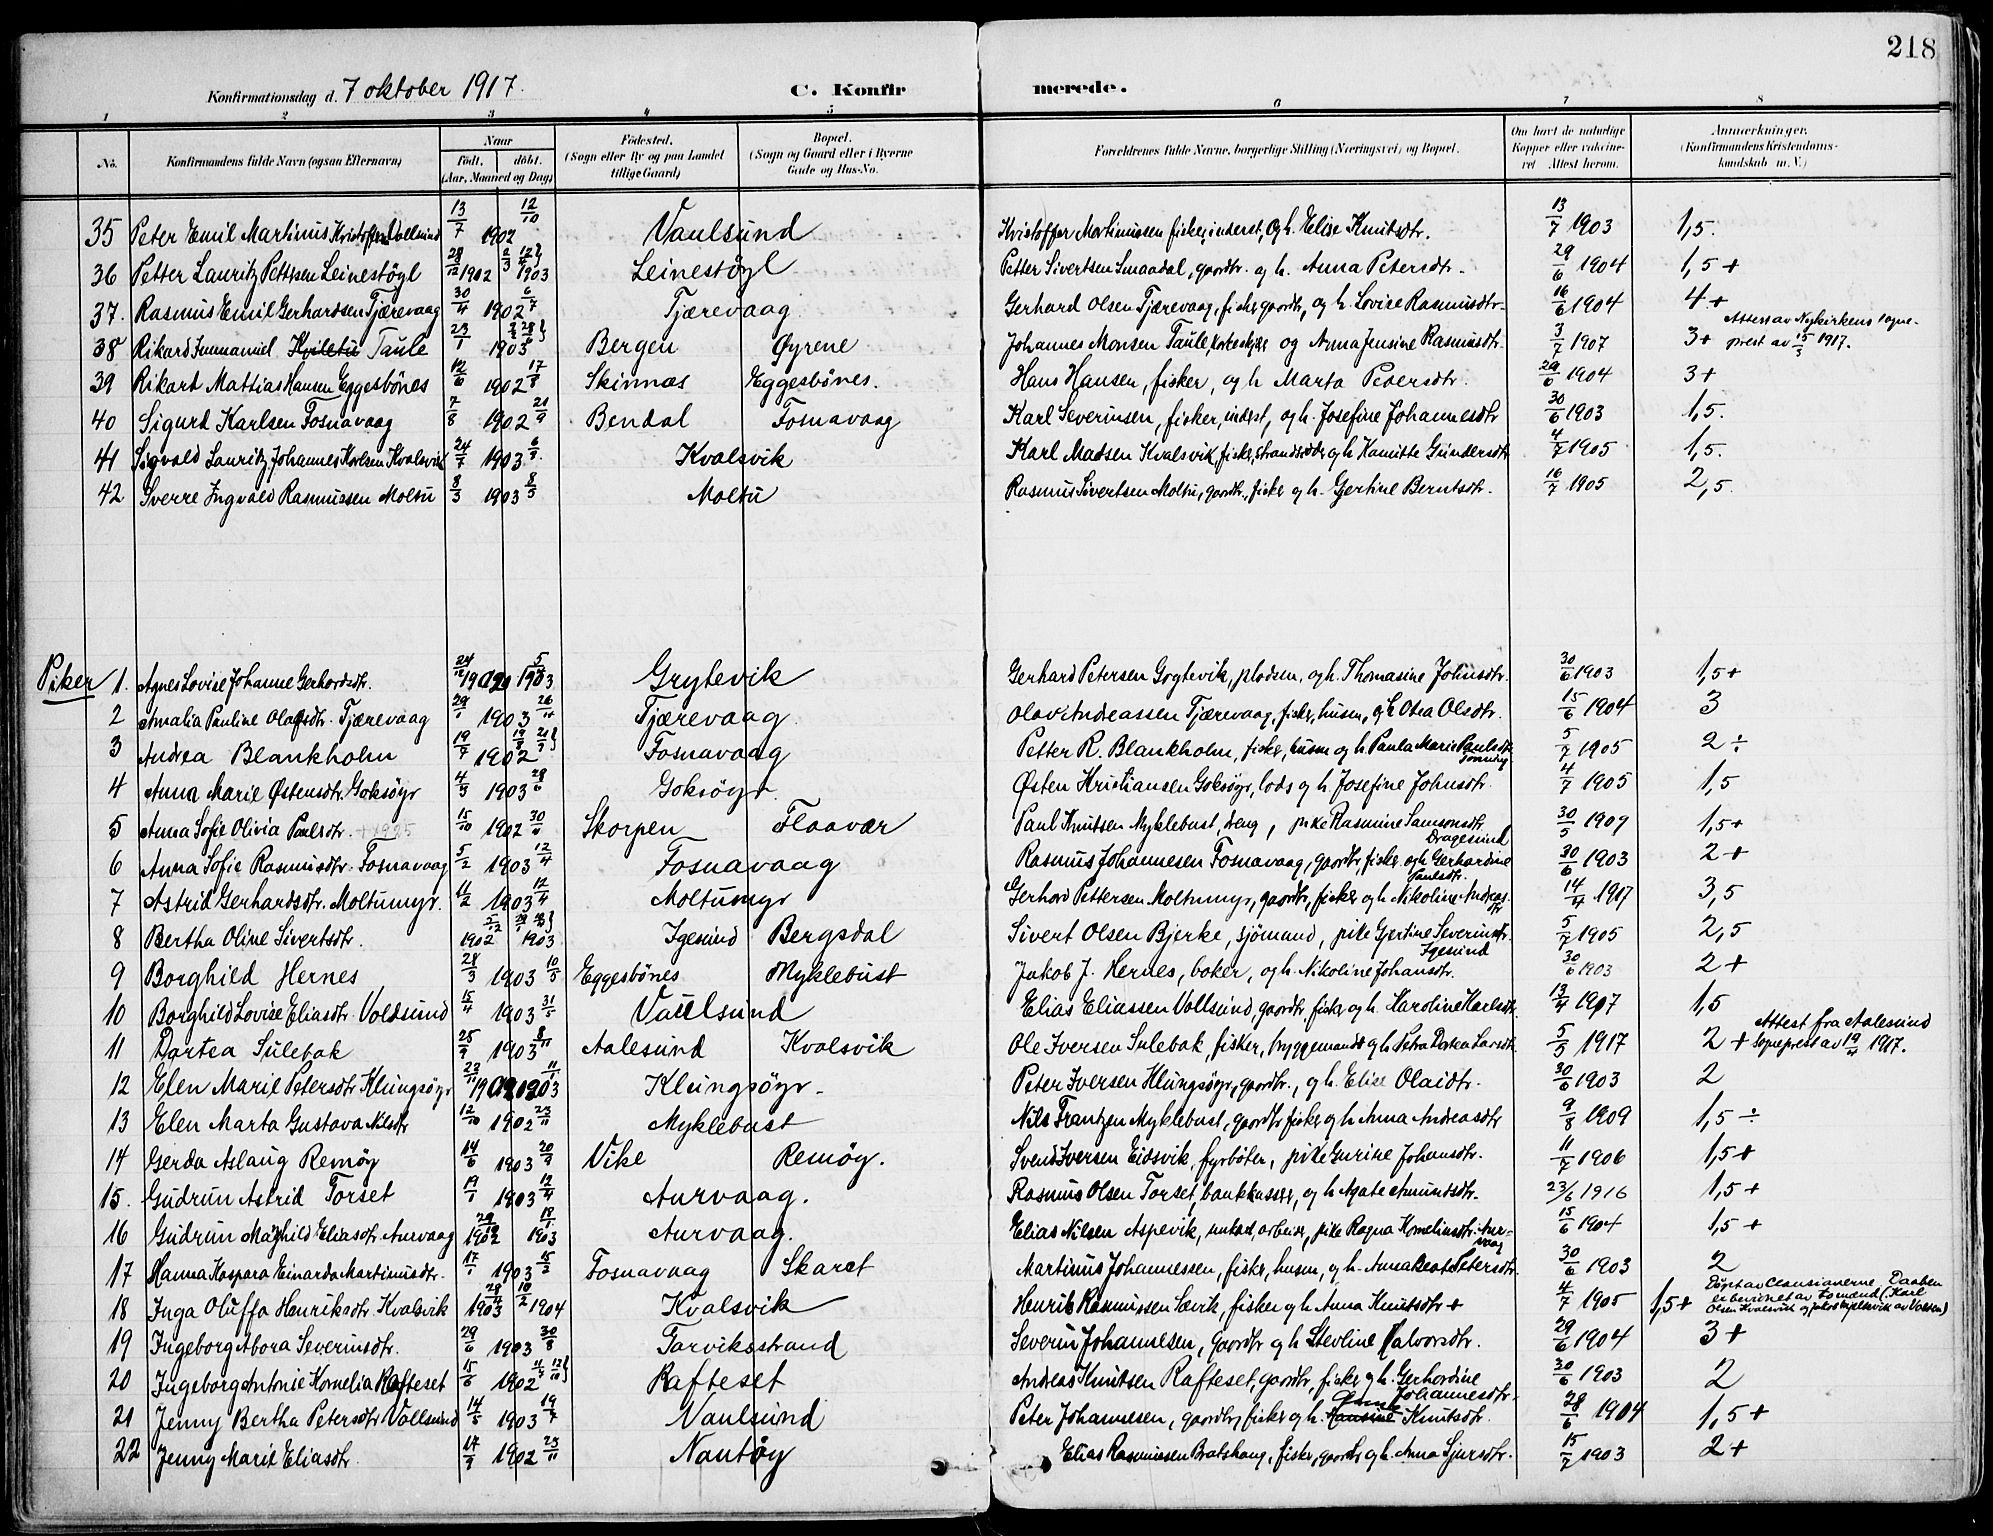 218
Konfirmationsdag d. 7 oktober 1917. C. Konfirmerede.
1 2 3 4 5 6 7 8
No. Konfirmandens fulde Navn (ogsaa Efternavn) Naar født. døbt. (Aar, Maaned og Dag) Fødested. (Sogn eller By og paa Landet tillige Gaard) Bopæl. (Sogn og Gaard eller i Byerne Gade og Hus-No. Forældrenes fulde Navne, borgerlige Stilling (Næringsvei) og Bopæl. Om havt de naturlige Kopper eller vaccineret Attest herom. Anmerkninger. (Konfirmandens Kristendomskundskab m. V.)
35 Peter Emil Martinus Kristoffersen Vollsund 13/7 1902 12/10 Vaulsund Kristoffer Martinussen fisker, inderst, og h. Elise Knutsdtr. 13/7 1903 1,5.
36 Petter Lauritz Pettersen Leinestøyl 28/12 1902 1903 Leinestøyl Petter Sivertsen Smaadal, gaardbr. og h. Anna Petersdtr. 29/6 1904 1,5 +
37. Rasmus Emil Gerhardsen Tjærevaag 30/4 1902 6/7 Tjærevaag Gerhard Olsen Tjærevaag, fisker, gaardbr, og h. Lovise Rasmusdtr. 16/6 1904 4 +
38 Rikard Immanuel Taule 23/1 1903 Bergen Øyrene Johannes Monsen Taule, og Anna Jensine Rasmusdtr. 3/7 1907 3 + Attest av Nykirkens sogneprest av 15/3 1917.
39 Rikart Mattias Hansen Eggesbönes 12/6 1902 17/8 Skinnes Eggesbönes. Hans Hansen, fisker, og h Marta Petersdtr. 29/6 1904 3 +
40 Sigurd Karlsen Fosnavaag 7/8 1902 21/9 Bendal Fosnavaag Karl Severinsen, fisker, inderst, og h. Josefine Johannesdtr 30/6 1903 1,5.
41 Sigvald Lauritz Johannes Karlsen Kvalsvik 24/7 1903 6/9 Kvalsvik Karl Madsen Kvalsvik, fisker, strandsidder og h Kamitte Gundersdtr 4/7 1905 1,5.
42 Sverre Ingvald Rasmussen Moltu 8/3 1903 8/5 Moltu Rasmus Sivertsen Moltu, gaardbr., fisker og h. Gjertine Berntsdtr. 16/7 1905 2,5.
Piker 1. Agnes Lovise Johanne Gerhardsdtr. 24/12 1902 5/4 1903 Grytevik Gerhard Petersen Grytevik, pladsm, og h. Thomasine Johnsdtr. 30/6 1903 1,5 +
2 Amalia Pauline Olafsdtr. Tjærevaag 29/1 1903 26/4 Tjærevaag. Olav Andreassen Tjærevaag, fisker, husm, og h Otea Olsdtr. 15/6 1904 3
3 Andrea Blankholm 19/7 1902 Fosnavaag Petter R. Blankholm, fisker, husm og h Paula Marie Paulsdtr 5/7 1905 2 ÷
4 Anna Marie Østensdtr. Goksöyr 4/3 1903 28/6 Goksöyr Østen Kristiansen Goksöyr, lods og h. Josefine Johnsdtr. 4/7 1905 1,5
5 Anna Sofie Olivia Paulsdtr. + 1925 15/10 1902 30/11 Skorpen Flaavær Paul Knutsen Myklebust, dreng, pike Rasmine Samsonsdtr. Dragesund 30/5 1909 1,5 +
6 Anna Sofie Rasmusdtr. Fosnavaag 5/2 1903 12/4 Fosnavaag Rasmus Johannesen Fosnavaag, gaardbr, fisker og h Gerhardine Paulsdtr. 30/6 1903 2 +
7 Astrid Gerhardsdtr. Moltumyr. 11/2 1903 12/4 Moltumyr Gerhard Pettersen Moltumyr, gaardbr, fisker og h Nikoline Andreasdtr 14/4 1917 3,5
8 Bertha Oline Sivertsdtr. 5/12 1902 1903 Igesund Bergsdal Sivert Olsen Bjerke, sjömand, pike Gjertine Severinsdtr. Igesund 5/7 1905 2,5
9 Borghild Hernes 28/3 1903 10/5 Eggesbönes Myklebust Jakob J. Hernes, baker, og h. Nikoline Johansdtr. 30/6 1903 2 +
10 Borghild Lovise Eliasdtr. Voldsund 15/4 1903 31/5 Vaulsund Elias Eliassen Vollsund, gaardbr. fisker og h. Karoline Karlsdtr. 13/4 1917 1,5
11 Dortea Sulebak 25/9 1903 8/11 Aalesund Kvalsvik Ole Iversen Sulebak, fisker, byggemand og h Petra Dortea Larsdtr. 5/5 1917 2 + Attest fra Aalesund Sogneprest av 19/4 1917.
12 Elen Marie Petersdtr Klungsöyr 23/11 1902 11/1 1903 Klungsöyr. Peter Iversen Klungsöyr, gaardbr., og h. Elise Olaidtr. 30/6 1903 2
13 Elen Marta Gustava Nilsdtr 12/10 1902 23/11 Myklebust Nils Frantzen Myklebust, gaardbr, fisker og h Anna Andreasdtr 9/8 1909 1,5 ÷
14 Gerda Aslaug Remöy 14/6 1903 20/9 Vike Remöy. Svend Iversen Eidsvik, fyrböter, pike Gurine Johansdtr. 11/7 1906 1,5 +
15. Gudrun Astrid Torset 19/1 1903 12/4 Aurvaag. Rasmus Olsen Torset, bankkasser, og h Agate Amundsdtr. 23/6 1916 1,5 +
16 Gudrun Maghild Eliasdtr. Aurvaag 29/12 1902 18/1 1903 Aurvaag. Elias Nilsen Aspevik, unkarl, arbeider, pike Ragna Korneliusdtr. Aurvaag 15/6 1904 1,5 +
17 Hanna Kaspara Einarda Martinusdtr. 17/1 1903 15/2 Fosnavaag Skaret Martinus Johannessen, fisker, husm, og h. Anna Beate Petersdtr. 30/6 1903 2
18 Inga Oluffa Henriksdtr Kvalsvik 1903 10/2 1904 Kvalsvik Henrik Rasmussen Sævik, fisker og h Anna Knutsdtr + 4/7 1905 1,5 + Döpt av Daaben er bevidnet av (Karl Olsen Kvalsvik og av Voksen)
19 Ingeborg Abora Severinsdtr. 29/6 1903 30/8 Tarviksstrand Severin Johannesen, gaardbr og h Stevline Halvorsdtr. 29/6 1904 3 +
20 Ingeborg Antonie Kornelia Rafteset 15/6 1902 Rafteset Andreas Knutsen Rafteset, gaardbr, fisker og h. Gerhardine Johannesdtr. 30/6 1903 2
21 Jenny Bertha Petersdtr Vollsund 14/5 1903 19/7 Vaulsund Peter Johannesen, gaardbr, fisker og h. Hansine Knutsdtr. 28/6 1904 1,5 +
22 Jenny Marie Eliasdtr. 17/9 1902 23/11 Nautöy Elias Rasmussen Bratshaug, fisker, gaardbr og h. Anna Sjursdtr. 15/7 1903 2 +